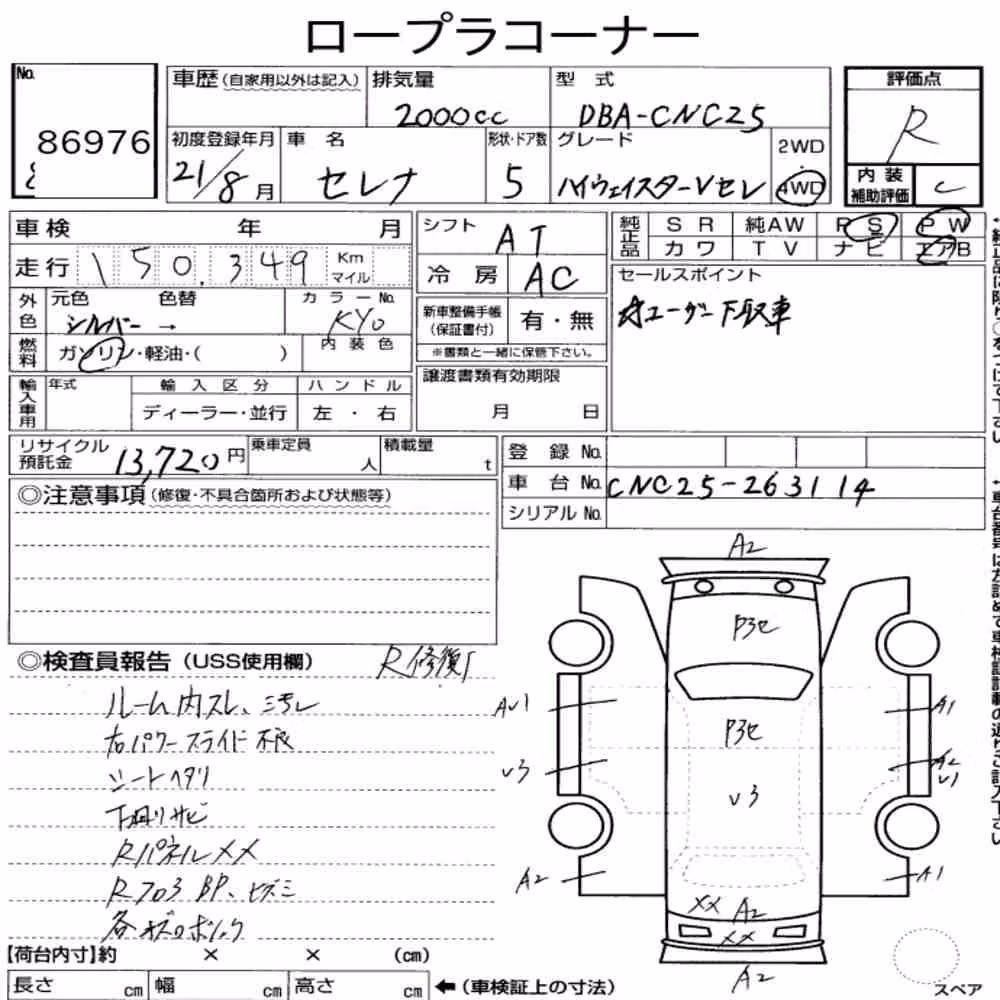 ロープラコーナー
No.
86976
車歴 (自家用以外は記入)
排気量
2000cc
型 式
DBA-CNC25
評価点
R
初度登録年月
21/8月
車 名
セレナ
形状・ドア数
5
グレード
ハイウェイスターVセレ
2WD
4WD
内装補助評価
C
車検 年 月
走行 150,349 Km マイル
シフト
AT
冷房
AC
純正品
SR 純AW PS PW
カワ TV ナビ エアB
セールスポイント
ユーザー下取車
外色
元色 色替 カラーNo.
シルバー → KY0
内装色
燃料
ガソリン・軽油・( )
新車整備手帳(保証書付)
有・無
※書類と一緒に保管下さい。
譲渡書類有効期限
月 日
輸入車用
年式 輸入区分 ハンドル
ディーラー・並行 左・右
リサイクル預託金
13,720円
乗車定員 人
積載量 t
登録No.
車台No. CNC25-263114
シリアルNo.
◎注意事項 (修復・不具合箇所および状態等)
◎検査員報告 (USS使用欄)
R修復
ルーム内スレ、ヨゴレ
右パワースライド不良
シートヘタリ
下回りサビ
RパネルXX
Rフロア BP、ヒズミ
各キズ
A2
P3セ
AV1
A1
P3セ
V3
A2
V1
V3
A2
A1
XX A2
XX
A2
スペア
【荷台内寸】約 × × (cm)
長さ cm 幅 cm 高さ cm ←(車検証上の寸法)